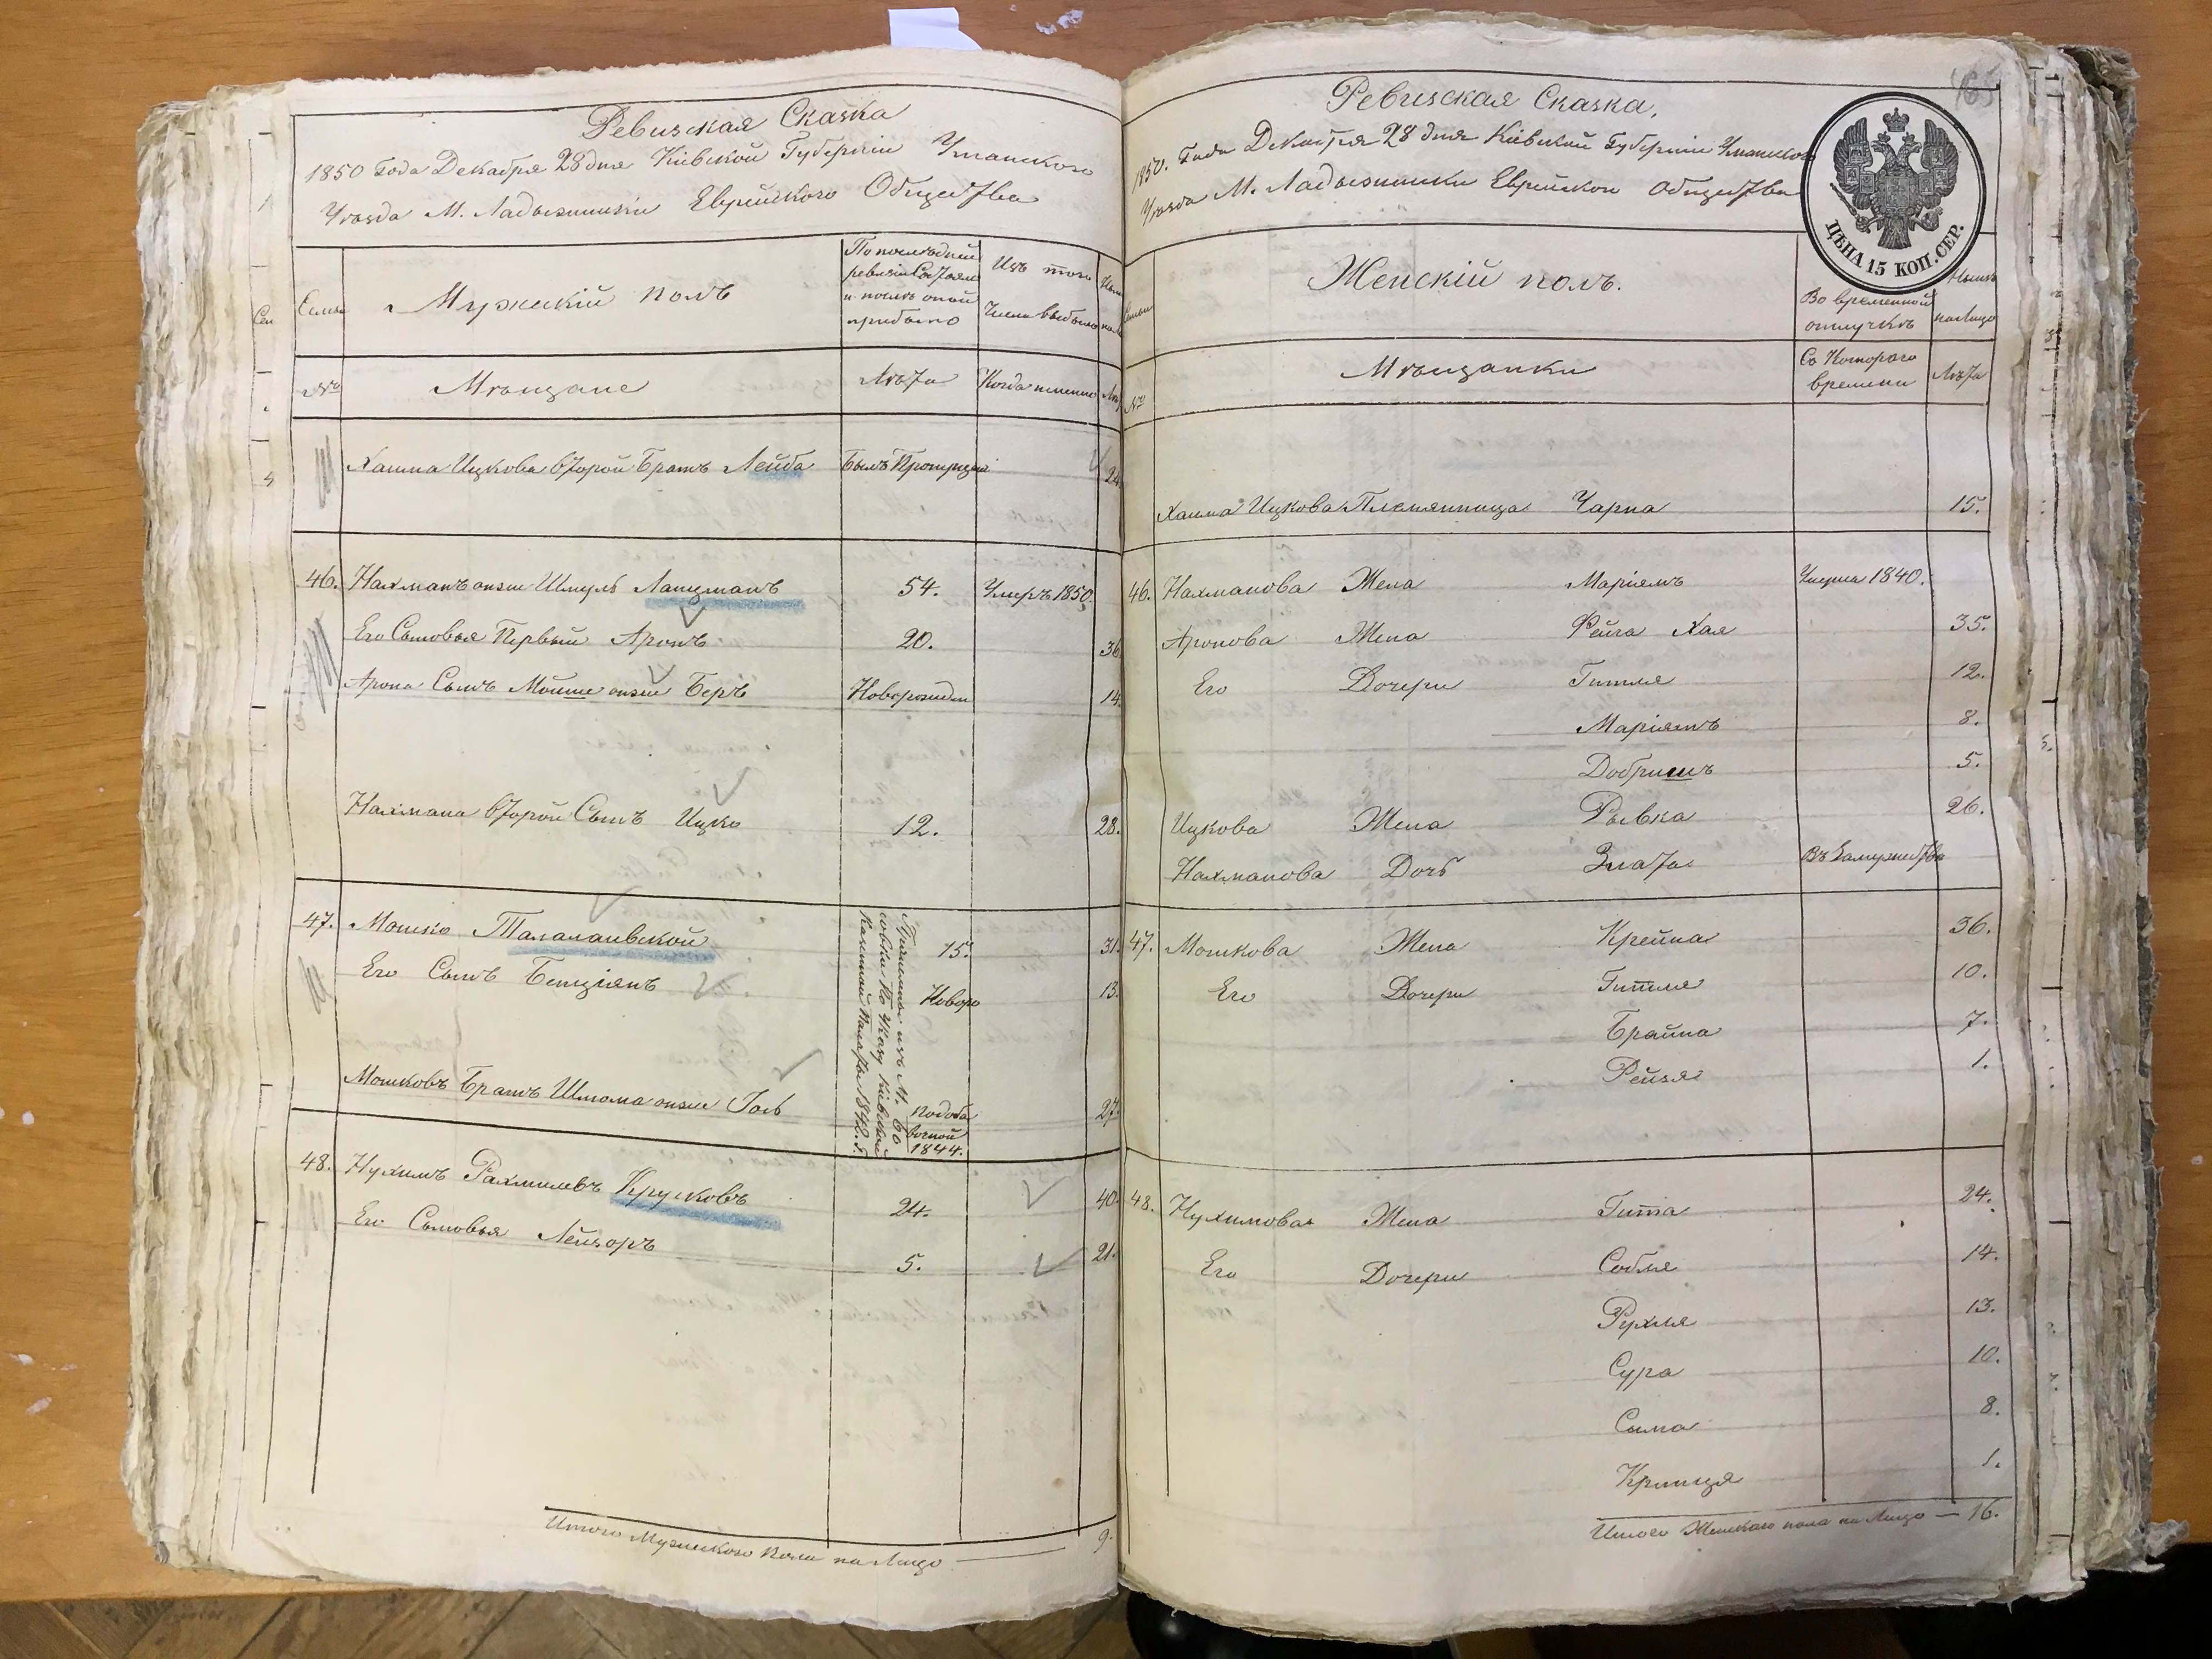 Ревизская Сказка
1850 Года Декабря 28 дня Кіевской Губерніи Уманского
Уезда М. Ладыжинки Еврейского Общества
Семьи
Мужескій полъ
По последней
ревизіи Состояло
и после оной
прибыло
Изъ того
Числа выбыло
№
Мѣщане
Лѣта
Когда именно
Хаима Ицкова второй Братъ Лейба
Былъ Пропущенъ
24
46.
Нахманъ онже Шмуль Лацманъ
54.
Умеръ 1850.
Его Сыновья Первый Аронъ
20.
36
Арона Сынъ Мойше онже Беръ
Новорожден
14.
Нахмана второй Сынъ Ицко
12.
28.
47.
Мошко Талалаивской
15.
31.
Его Сынъ Бенціянъ
Новоро
13.
Мошковъ Братъ Шлома онже Гось
по доба
вочной
1844.
27.
48.
Нухимъ Рахмилевъ Крусковъ
24.
40.
Его Сыновья Лейзоръ
5.
21.
Итого Мужеского пола на Лицо — 9.
165
Ревизская Сказка,
1850. Года Декабря 28 дня Кіевской Губерніи Уманского
Уезда М. Ладыжинки Еврейского Общества
ЦѢНА 15 КОП. СЕР.
Семьи
Женскій полъ.
Во временной
отлучкѣ
Нынѣ
на Лицо
№
Мѣщанки
Съ Которого
времени
Лѣта
Хаима Ицкова Племянница Чарна
15.
46.
Нахманова Жена Маріямъ
Умерла 1840.
Аронова Жена Фейга Хая
35.
Его Дочери Гитля
12.
Маріямъ
8.
Добришъ
5.
Ицкова Жена Рывка
26.
Нахманова Дочь Злата
Въ Замужества
47.
Мошкова Жена Крейна
36.
Его Дочери Гитля
10.
Брайна
7.
Рейзя
1.
48.
Нухимова Жена Гита
24.
Его Дочери Собля
14.
Рухля
13.
Сура
10.
Сима
8.
Кринця
1.
Итого Женского пола на Лицо — 16.